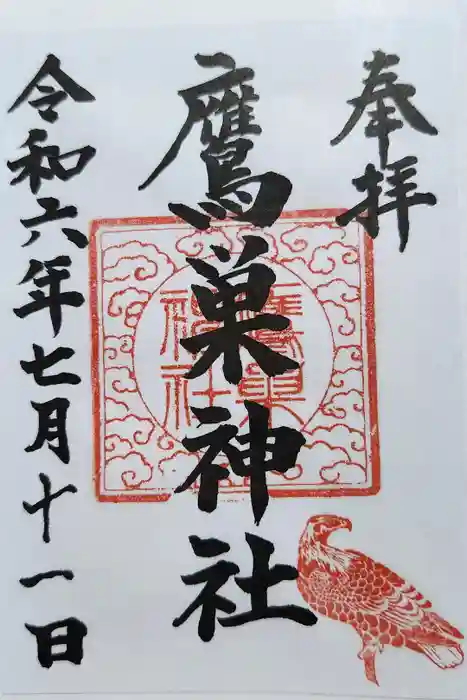 奉拝
鷹巣神社
令和六年七月十一日
鷹巣
神社